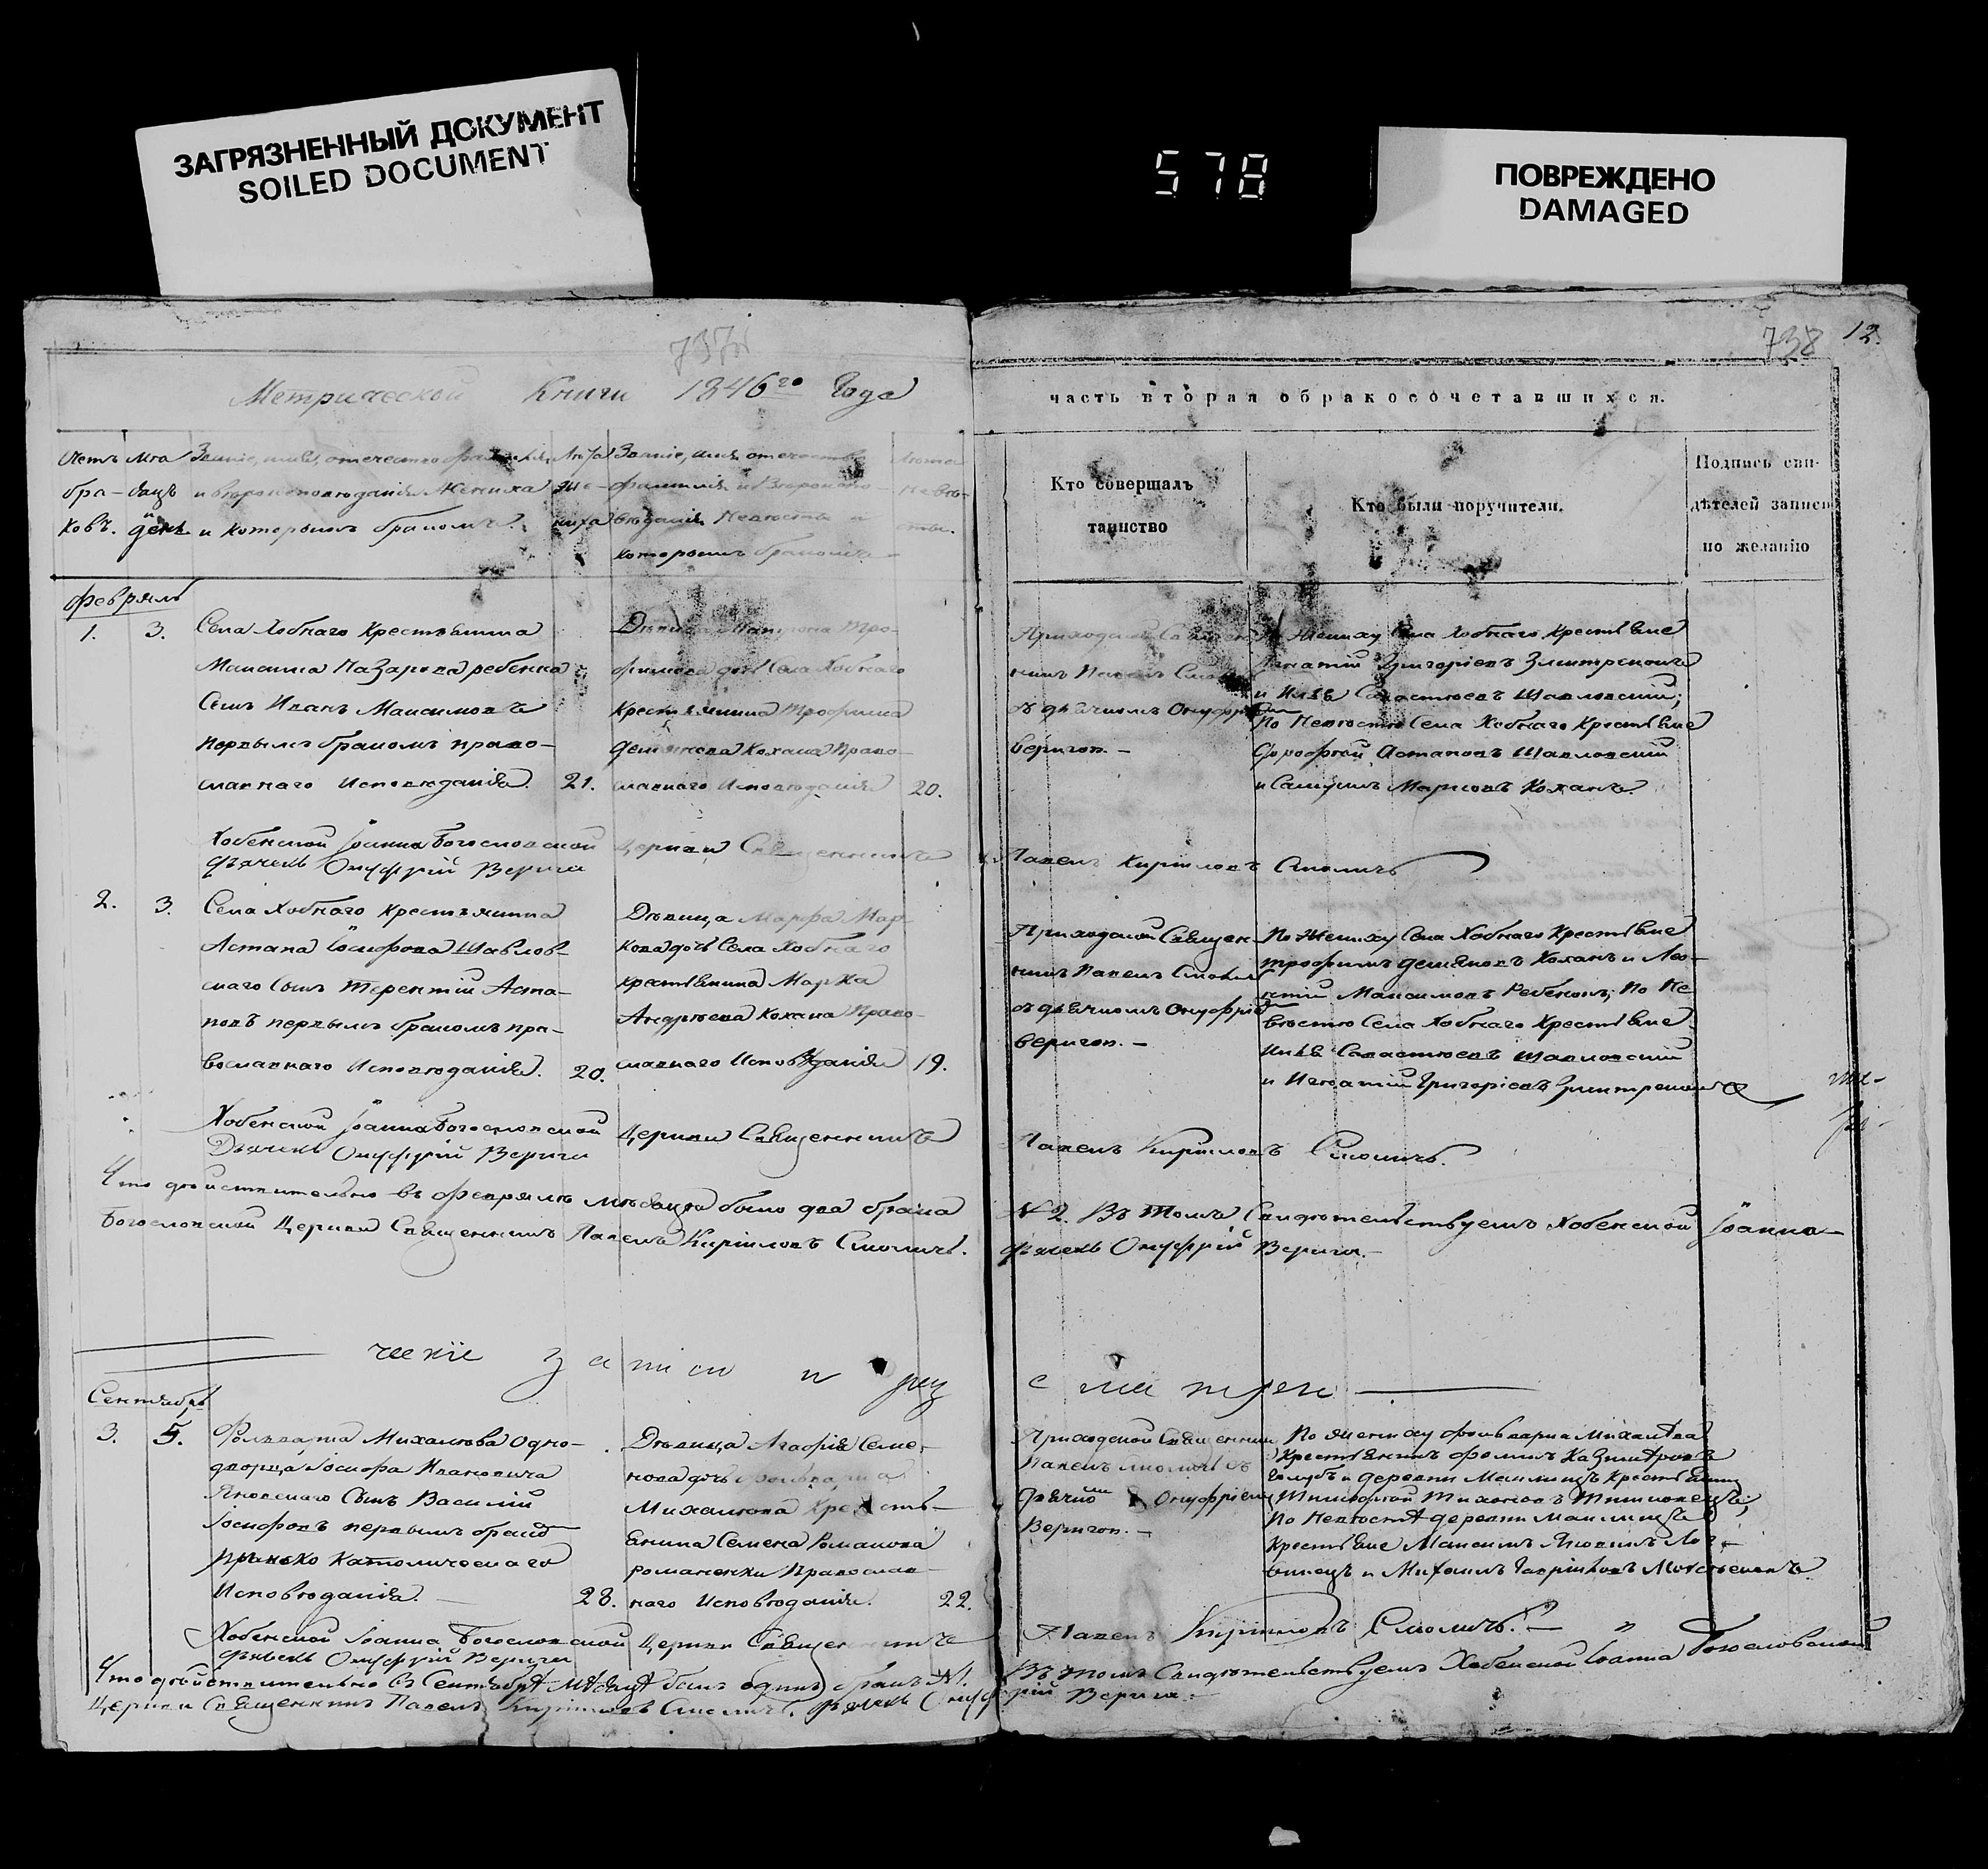 ЗАГРЯЗНЕННЫЙ ДОКУМЕНТ
SOILED DOCUMENT
578
ПОВРЕЖДЕНО
DAMAGED
738 12.
Метрической Книги 1846го Года
Счетъ бра-ковъ.
Мѣ-сяцъ и день
Званіе, имя, отечество, фамилія,
и вѣроисповѣданіе Жениха
и которымъ бракомъ.
Лѣта же-ниха
Званіе, имя, отечество,
фамилія и вѣроиспо-
вѣданіе Невѣсты и
которымъ бракомъ
Лѣта невѣ-сты.
Февраль
1. 3.
Села Хобнаго Крестьянина
Максима Назарова ребенка
Сынъ Иванъ Максимовъ
первымъ бракомъ право-
славнаго Исповѣданія. 21.
Дѣвица Матрона Тро-
фимова дочь Села Хобнаго
Крестьянина Трофима
Демянова Кохана Право-
славнаго Исповѣданія 20.
Хобенской Іоанна Богословской Церкви Священникъ
дьячекъ Онуфрій Верига
2. 3.
Села Хобнаго Крестьянина
Астапа Іосифова Шавлов-
скаго Сынъ Терентій Аста-
повъ первымъ бракомъ пра-
вославнаго Исповѣданія. 20.
Дѣвица Марфа Мар-
кова дочь Села Хобнаго
крестьянина Марка
Андрѣева Кохана Право-
славнаго Исповѣданія 19.
Хобенской Іоанна Богословской Церкви Священникъ
Дьячекъ Онуфрій Верига
Что дѣйствительно въ Февралѣ мѣсяцѣ было два брака
Богословской Церкви Священникъ Павелъ Кириловъ Смоличъ.
Сентябрь
3. 5.
Фольварка Михалѣва Одно-
дворца Іосифа Ивановича
Яновскаго Сынъ Василій
Іосифовъ первымъ бракомъ
Римско Католическаго
Исповѣданія. 28.
Дѣвица Агафія Семе-
нова дочь фольварка
Михалѣва Крестья-
янина Семена Романова
романенки Православ-
наго Исповѣданія. 22.
Хобенской Іоанна Богословской Церкви Священникъ
дьячекъ Онуфрій Верига
Что дѣйствительно въ Сентябрѣ мѣсяцѣ былъ одинъ бракъ №1.
Церкви Священникъ Павелъ Кириловъ Смоличъ. Дьячекъ Онуф
часть вторая о бракосочетавшихся.
Кто совершалъ
таинство
Кто были поручители.
Подпись сви-
дѣтелей записи
по желанію
Приходской Священ-
никъ Павелъ
съ дьячкомъ Онуфріемъ
Веригою. —
По Жениху Села Хобнаго Крестьяне
Игнатій Григоріевъ
и Илья Савастѣевъ Шавловскій;
По Невѣстѣ Села Хобнаго Крестьяне
Астаповъ Шавловскій
и Самуилъ Марковъ Коханъ.
Павелъ Кириловъ Смоличъ
Приходской Священ-
никъ Павелъ Смоличъ
съ дьячкомъ Онуфріемъ
Веригою. —
По Жениху Села Хобнаго Крестьяне
трофимъ демяновъ Коханъ и Лео-
нтій Максимовъ Ребенокъ; По Не-
вѣстѣ Села Хобнаго Крестьяне
Илья Савастѣевъ Шавловскій
и Игнатій Григоріевъ
Павелъ Кириловъ Смоличъ.
№ 2. Въ томъ Свидѣтельствуемъ Хобенской Іоанно-
дьячекъ Онуфрій Верига. —
Приходской Священникъ
Павелъ Смоличъ съ
дьячкомъ Онуфріемъ
Веригою. —
По жениху фольварка Михалѣва
Крестьянинъ фомичъ Казиміровъ
голубъ и деревни Крестьянинъ
Тимофей Тихоновъ
По Невѣстѣ деревни
Крестьяне Максимъ
и Михаилъ Гавриловъ
Павелъ Кириловъ Смоличъ. —
Въ томъ Свидѣтельствуемъ Хобенской Іоанна Богословской
рій Верига. —